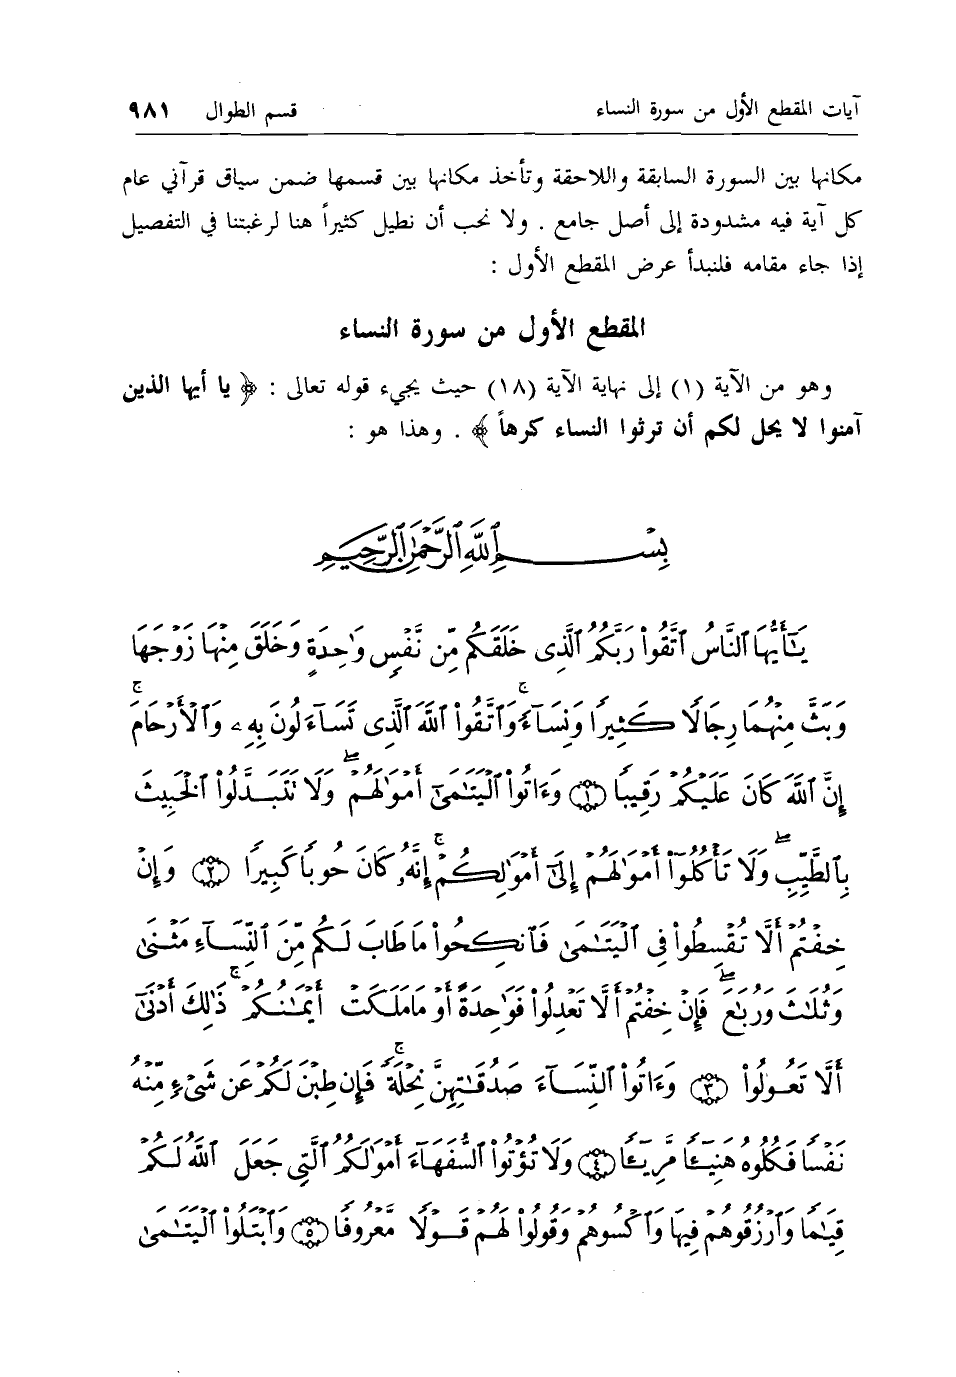 آيات المقطع الأول من سورة النساء قسم الطوال ٩٨١
مكانها بين السورة السابقة واللاحقة وتأخذ مكانها بين قسمها ضمن سياق قرآني عام
كل آية فيه مشدودة إلى أصل جامع . ولا نحب أن نطيل كثيراً هنا لرغبتنا في التفصيل
إذا جاء مقامه فلنبدأ عرض المقطع الأول :
المقطع الأول من سورة النساء
وهو من الآية (١) إلى نهاية الآية (١٨) حيث يجيء قوله تعالى : ﴿ يا أيها الذين
آمنوا لا يحل لكم أن ترثوا النساء كرهاً ﴾ . وهذا هو :
بِسْمِ ٱللَّهِ ٱلرَّحْمَٰنِ ٱلرَّحِيمِ
يَٰٓأَيُّهَا ٱلنَّاسُ ٱتَّقُوا۟ رَبَّكُمُ ٱلَّذِى خَلَقَكُم مِّن نَّفْسٍ وَٰحِدَةٍ وَخَلَقَ مِنْهَا زَوْجَهَا
وَبَثَّ مِنْهُمَا رِجَالًا كَثِيرًا وَنِسَآءً ۚ وَٱتَّقُوا۟ ٱللَّهَ ٱلَّذِى تَسَآءَلُونَ بِهِۦ وَٱلْأَرْحَامَ ۚ
إِنَّ ٱللَّهَ كَانَ عَلَيْكُمْ رَقِيبًا ﴿١﴾ وَءَاتُوا۟ ٱلْيَتَٰمَىٰٓ أَمْوَٰلَهُمْ ۖ وَلَا تَتَبَدَّلُوا۟ ٱلْخَبِيثَ
بِٱلطَّيِّبِ ۖ وَلَا تَأْكُلُوٓا۟ أَمْوَٰلَهُمْ إِلَىٰٓ أَمْوَٰلِكُمْ ۚ إِنَّهُۥ كَانَ حُوبًا كَبِيرًا ﴿٢﴾ وَإِنْ
خِفْتُمْ أَلَّا تُقْسِطُوا۟ فِى ٱلْيَتَٰمَىٰ فَٱنكِحُوا۟ مَا طَابَ لَكُم مِّنَ ٱلنِّسَآءِ مَثْنَىٰ
وَثُلَٰثَ وَرُبَٰعَ ۖ فَإِنْ خِفْتُمْ أَلَّا تَعْدِلُوا۟ فَوَٰحِدَةً أَوْ مَا مَلَكَتْ أَيْمَٰنُكُمْ ۚ ذَٰلِكَ أَدْنَىٰٓ
أَلَّا تَعُولُوا۟ ﴿٣﴾ وَءَاتُوا۟ ٱلنِّسَآءَ صَدُقَٰتِهِنَّ نِحْلَةً ۚ فَإِن طِبْنَ لَكُمْ عَن شَىْءٍ مِّنْهُ
نَفْسًا فَكُلُوهُ هَنِيٓـًٔا مَّرِيٓـًٔا ﴿٤﴾ وَلَا تُؤْتُوا۟ ٱلسُّفَهَآءَ أَمْوَٰلَكُمُ ٱلَّتِى جَعَلَ ٱللَّهُ لَكُمْ
قِيَٰمًا وَٱرْزُقُوهُمْ فِيهَا وَٱكْسُوهُمْ وَقُولُوا۟ لَهُمْ قَوْلًا مَّعْرُوفًا ﴿٥﴾ وَٱبْتَلُوا۟ ٱلْيَتَٰمَىٰ